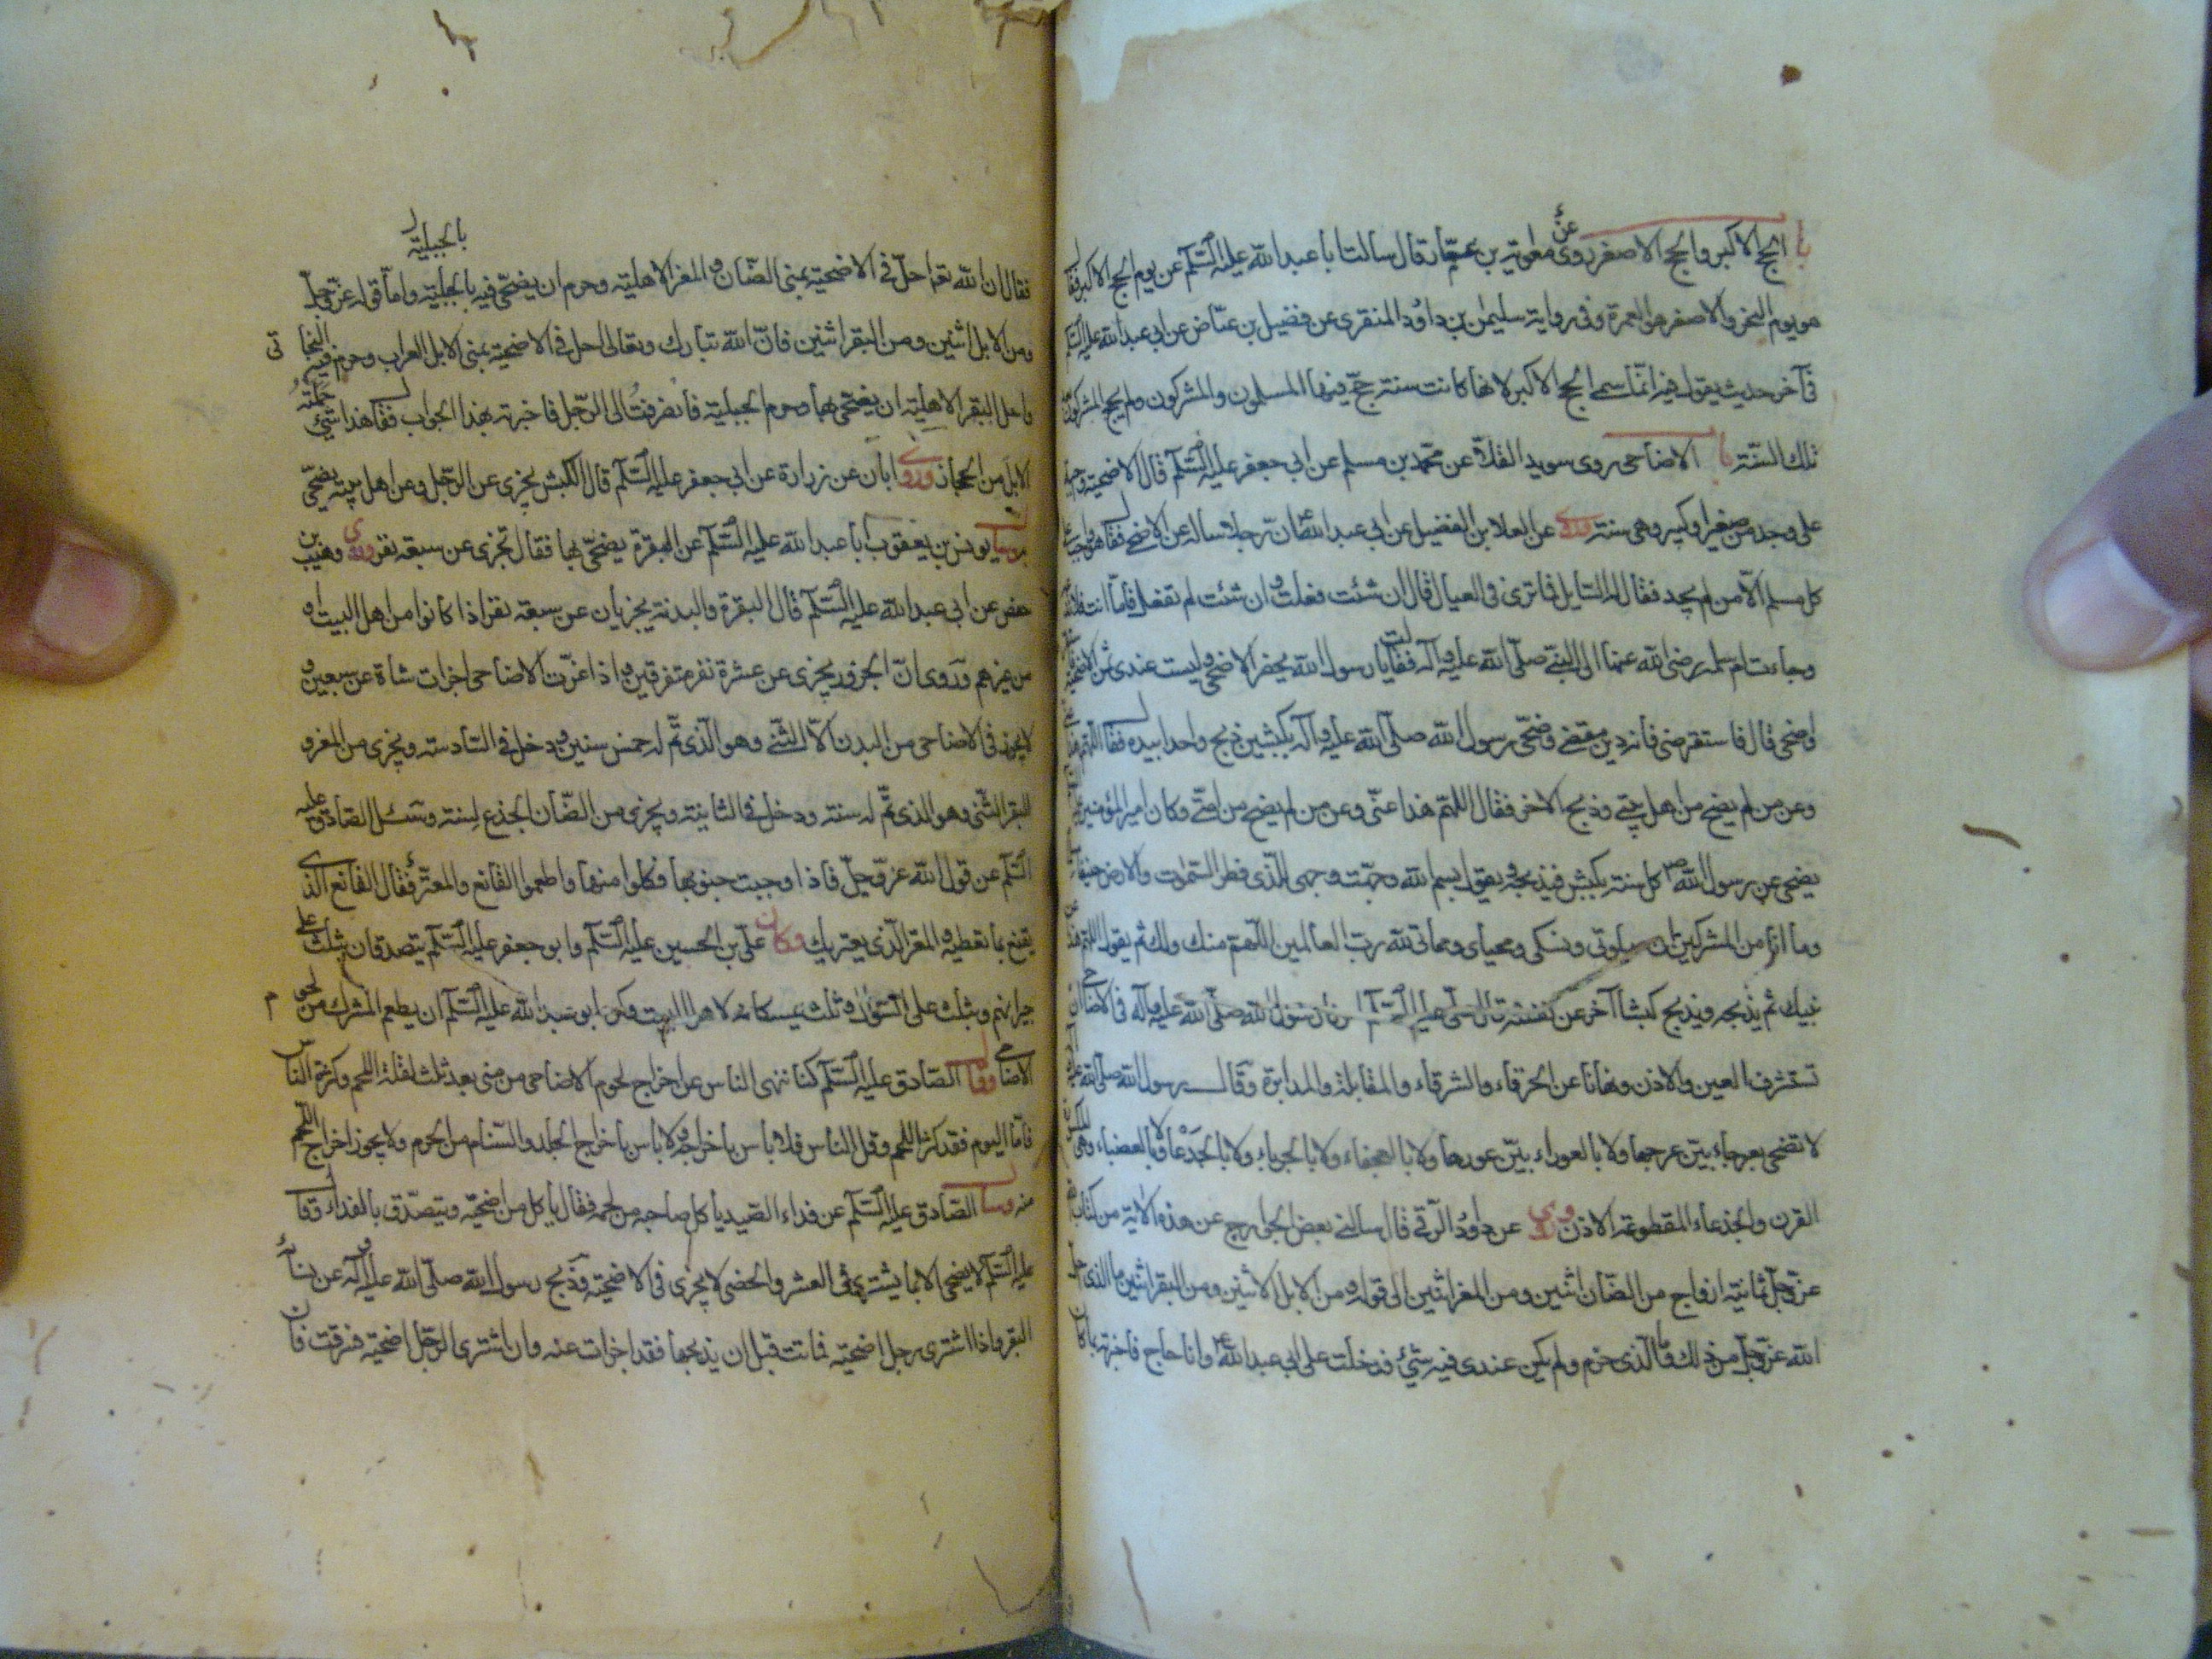 باب الحج الاكبر والحج الاصغر روى معوية بن عمار قال سالت ابا عبد الله عليه السلم عن يوم الحج الاكبر فقال
هو يوم النحر والاصغر هو العمرة وفى رواية سليمن بن داود المنقرى عن فضيل بن عياض عن ابى عبد الله عليه السلم
فى آخر حديث يقول فيه انما سمى الحج الاكبر لانها كانت سنة حج فيها المسلمون والمشركون ولم يحج المشركون
تلك السنة باب الاضاحى روى سويد القلا عن محمد بن مسلم عن ابى جعفر عليه السلم قال الاضحية واجبة
على من وجد من صغير او كبير وهى سنة وروى عن العلا بن الفضيل عن ابى عبد الله ان رجلا ساله عن الاضحى فقال هو واجب على
كل مسلم الا من لم يجد فقال له السايل فما ترى فى العيال قال ان شئت فعلت وان شئت لم تفعل فاما انت فلا تدعه
وجاءت ام سلمة رضى الله عنها الى النبى صلى الله عليه وآله فقالت يا رسول الله يحضر الاضحى وليست عندى ثمن الاضحية
واضحى قال فاستقرضى فانه دين مقضى وضحى رسول الله صلى الله عليه وآله بكبشين ذبح واحدا بيده فقال اللهم هذا
وعن من لم يضح من اهل بيتى وذبح الاخر فقال اللهم هذا عنى وعن من لم يضح من امتى وكان امير المؤمنين
يضحى عن رسول الله ص كل سنة بكبش فيذبحه ويقول بسم الله وجهت وجهى للذى فطر السموات والارض حنيفا
وما انا من المشركين ان صلوتى ونسكى ومحياى ومماتى لله رب العالمين اللهم منك ولك ثم يقول اللهم هذا عن
نبيك ثم يذبحه ويذبح كبشا آخر عن نفسه وقال على عليه السلم امرنا رسول الله صلى الله عليه وآله فى الاضاحى ان
تستشرف العين والاذن ونهانا عن الخرقاء والشرقاء والمقابلة والمدابرة وقال رسول الله صلى الله عليه
لا تضحى بعرجاء بين عرجها ولا بالعوراء بين عورها ولا بالعجفاء ولا بالجرباء ولا بالجدعاء ولا بالعضباء وهى المكسورة
القرن والجدعاء المقطوعة الاذن وروى عن داود الرقى قال سالنى بعض الخوارج عن هذه الاية من كتاب
عز وجل ثمانية ازواج من الضان اثنين ومن المعز اثنين الى قوله ومن الابل اثنين ومن البقر اثنين ما الذى احل
الله عز وجل من ذلك وما الذى حرم ولم يكن عندى فيه شئ فدخلت على ابى عبد الله ع وانا حاج فاخبرته بما كان
بالجبلية
فقال ان الله تعا احل فى الاضحية بمنى الضان والمعز الاهلية وحرم ان يضحى فيه بالجبلية واما قوله عز وجل
ومن الابل اثنين ومن البقر اثنين فان الله تبارك وتعالى احل فى الاضحية بمنى الابل العراب وحرم فيها البخاتى
واحل البقر الاهلية ان يضحى بها وحرم الجبلية فانصرفت الى الرجل فاخبرته بهذا الجواب فقال هذا شئ حملته
الابل من الحجاز وروى ابان عن زرارة عن ابى جعفر عليه السلم قال الكبش يجزى عن الرجل وعن اهل بيته يضحى
به وسال يونس بن يعقوب ابا عبد الله عليه السلم عن البقرة يضحى بها فقال تجزى عن سبعة نفر وروى وهيب بن
حفص عن ابى عبد الله عليه السلم قال البقرة والبدنة يجزيان عن سبعة نفر اذا كانوا من اهل البيت او
من غيرهم وروى ان الجزور يجزى عن عشرة نفر متفرقين واذا عزت الاضاحى اجزات شاة عن سبعين و
لا يجوز فى الاضاحى من البدن الا الثنى وهو الذى تم له خمس سنين ودخل فى السادسة ويجزى من المعز و
البقر الثنى وهو الذى تم له سنة ودخل فى الثانية ويجزى من الضان الجذع لسنة وسئل الصادق عليه
السلم عن قول الله عز وجل فاذا وجبت جنوبها فكلوا منها واطعموا القانع والمعتر فقال القانع الذى
يقنع بما تعطيه والمعتر الذى يعتريك وكان على بن الحسين عليه السلم وابو جعفر عليه السلم يتصدقان بثلث على
جيرانهم وبثلث على السؤال وثلث يمسكانه لاهل البيت وكره ابو عبد الله عليه السلم ان يطعم المشرك من لحوم
الاضاحى وقال الصادق عليه السلم كنا ننهى الناس عن اخراج لحوم الاضاحى من منى بعد ثلث لقلة اللحم وكثرة الناس
فاما اليوم فقد كثر اللحم وقل الناس فلا باس باخراجه ولا باس باخراج الجلد والسنام من الحرم ولا يجوز اخراج اللحم
منه وسال الصادق عليه السلم عن فداء الصيد ياكل صاحبه من لحمه فقال ياكل من اضحيته ويتصدق بالفداء وقال
عليه السلم لا يضحى الا بما يشترى فى العشر والخصى لا يجزى فى الاضحية وذبح رسول الله صلى الله عليه وآله عن نسائه
البقر واذا اشترى رجل اضحية فماتت قبل ان يذبحها فقد اجزات عنه وان اشترى الرجل اضحية فسرقت فان